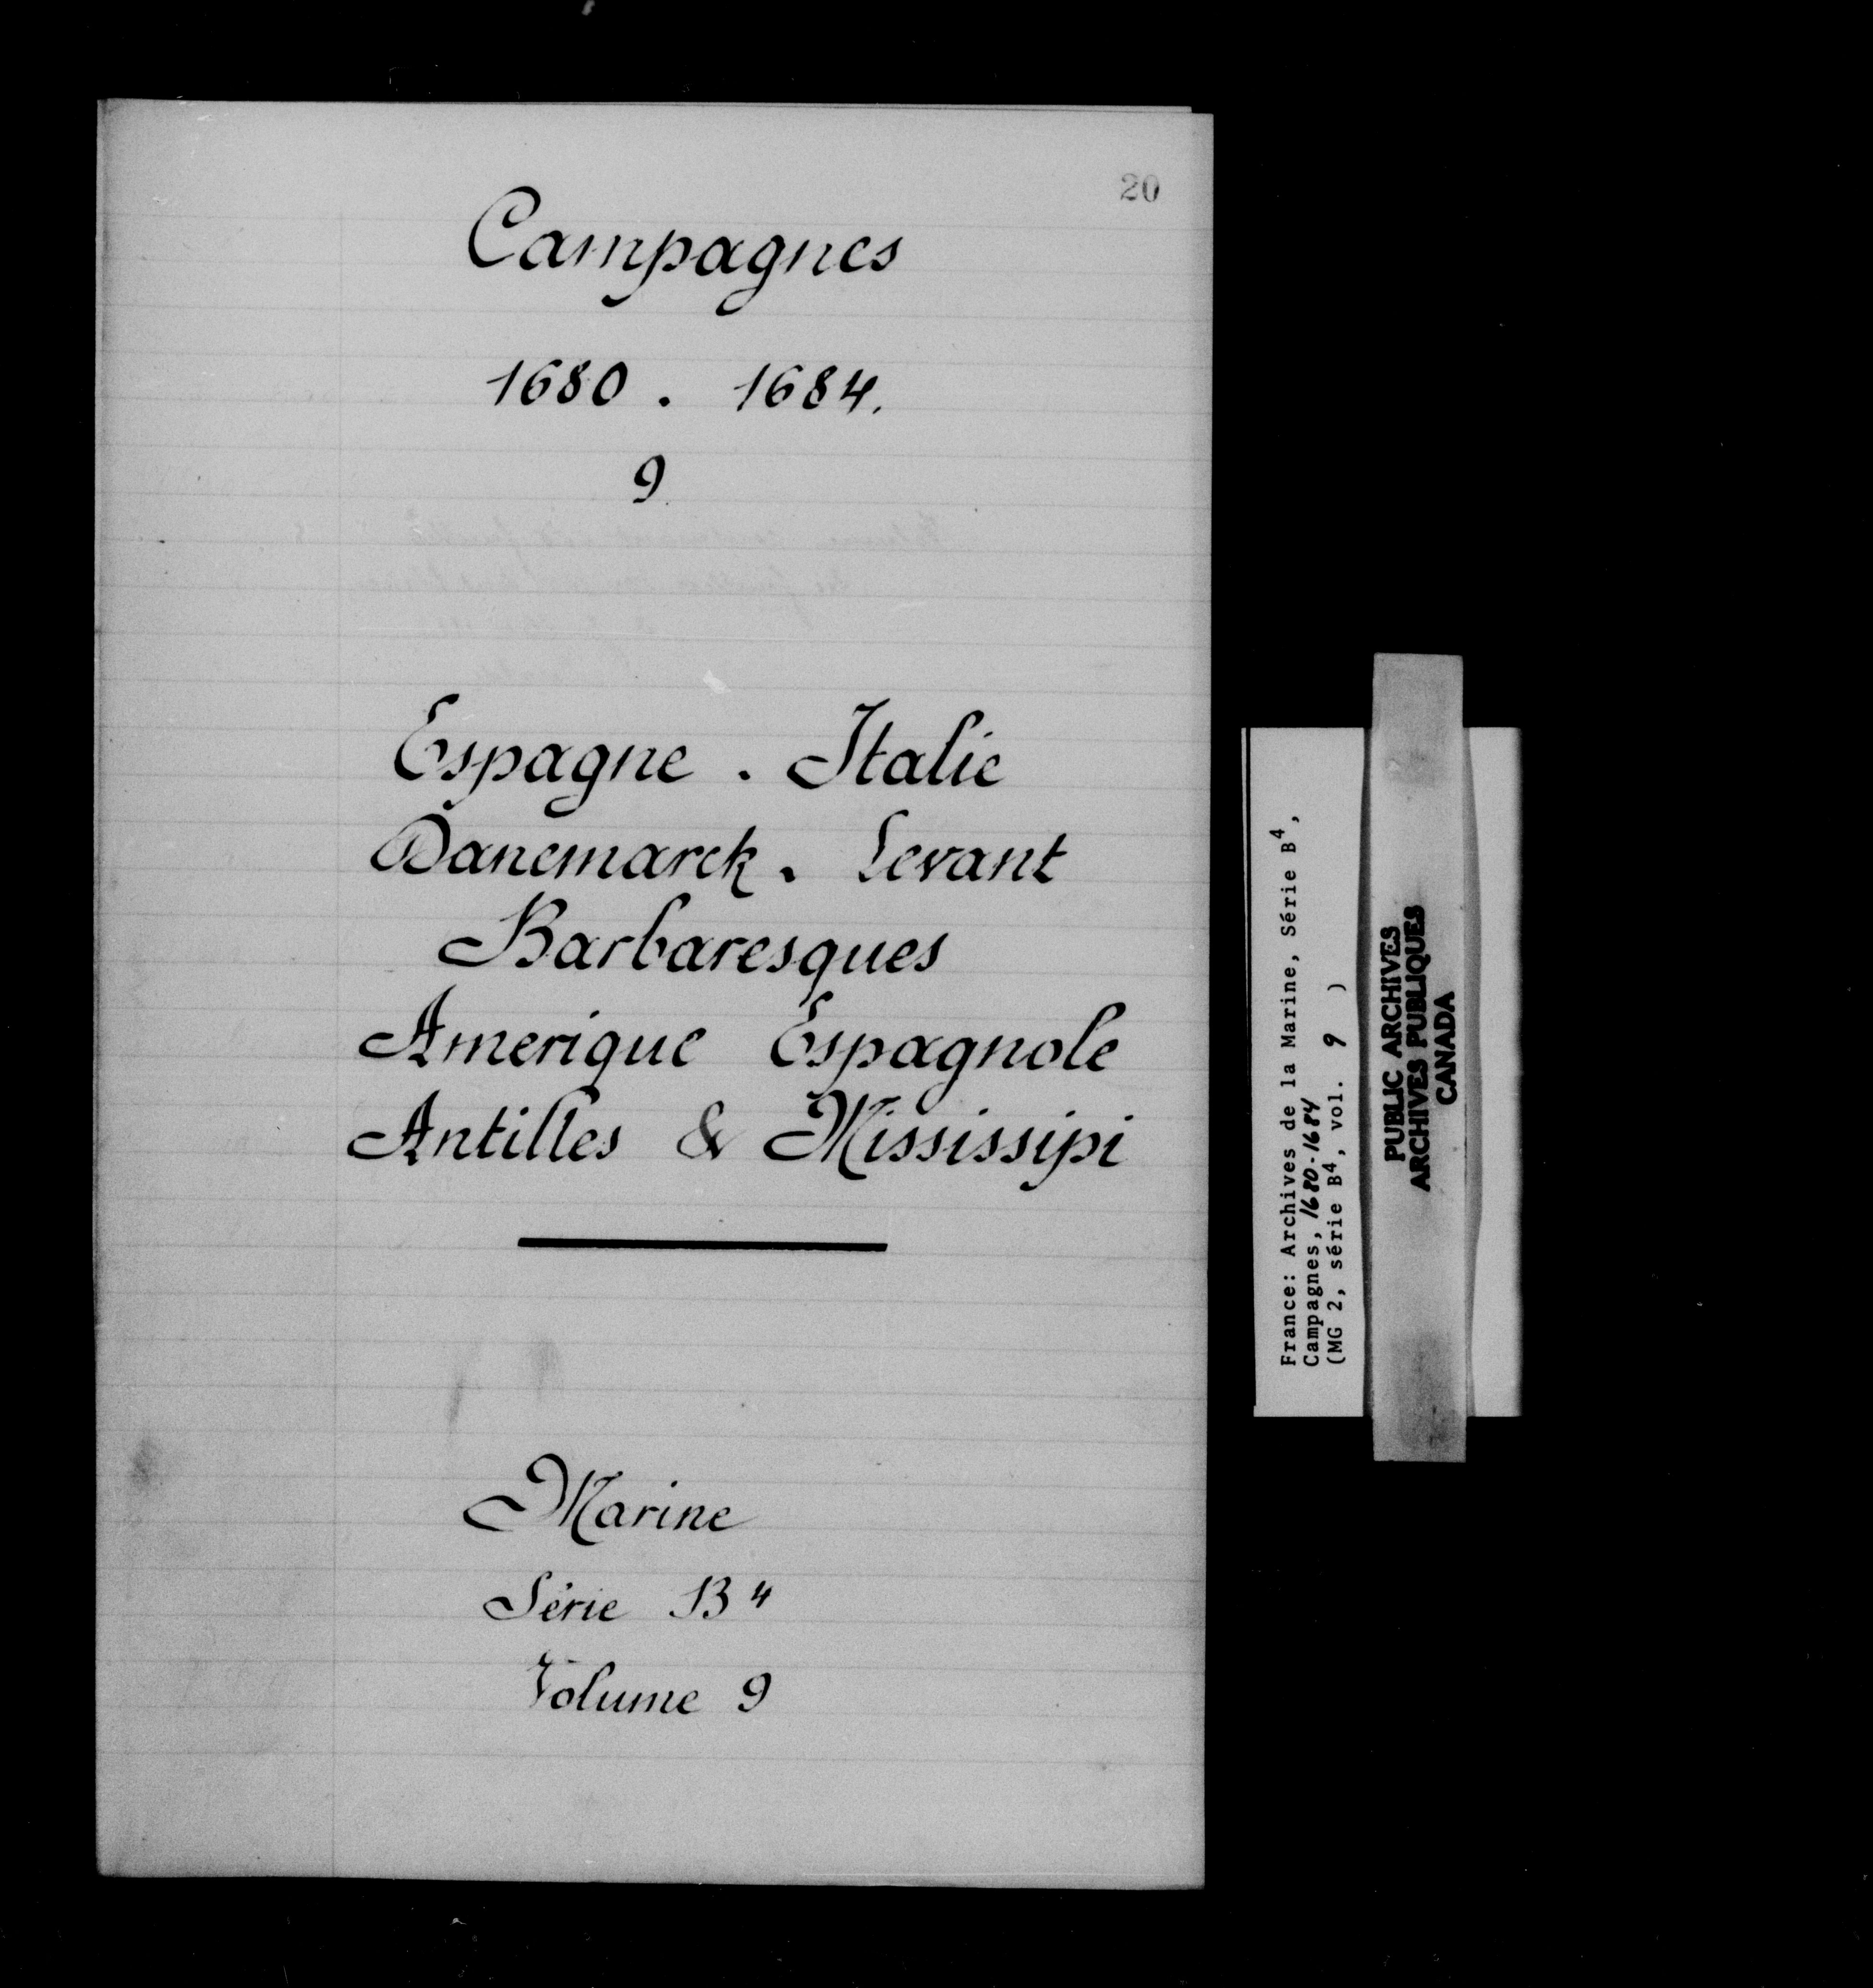 20
Campagnes
1680 . 1684.
9
Espagne . Italie
Danemarck . Levant
Barbaresques
Amerique Espagnole
Antilles & Mississipi
Marine
Série B 4
Volume 9
France: Archives de la Marine, Série B4,
Campagnes, 1680-1684
(MG 2, série B4, vol. 9 )
PUBLIC ARCHIVES
ARCHIVES PUBLIQUES
CANADA